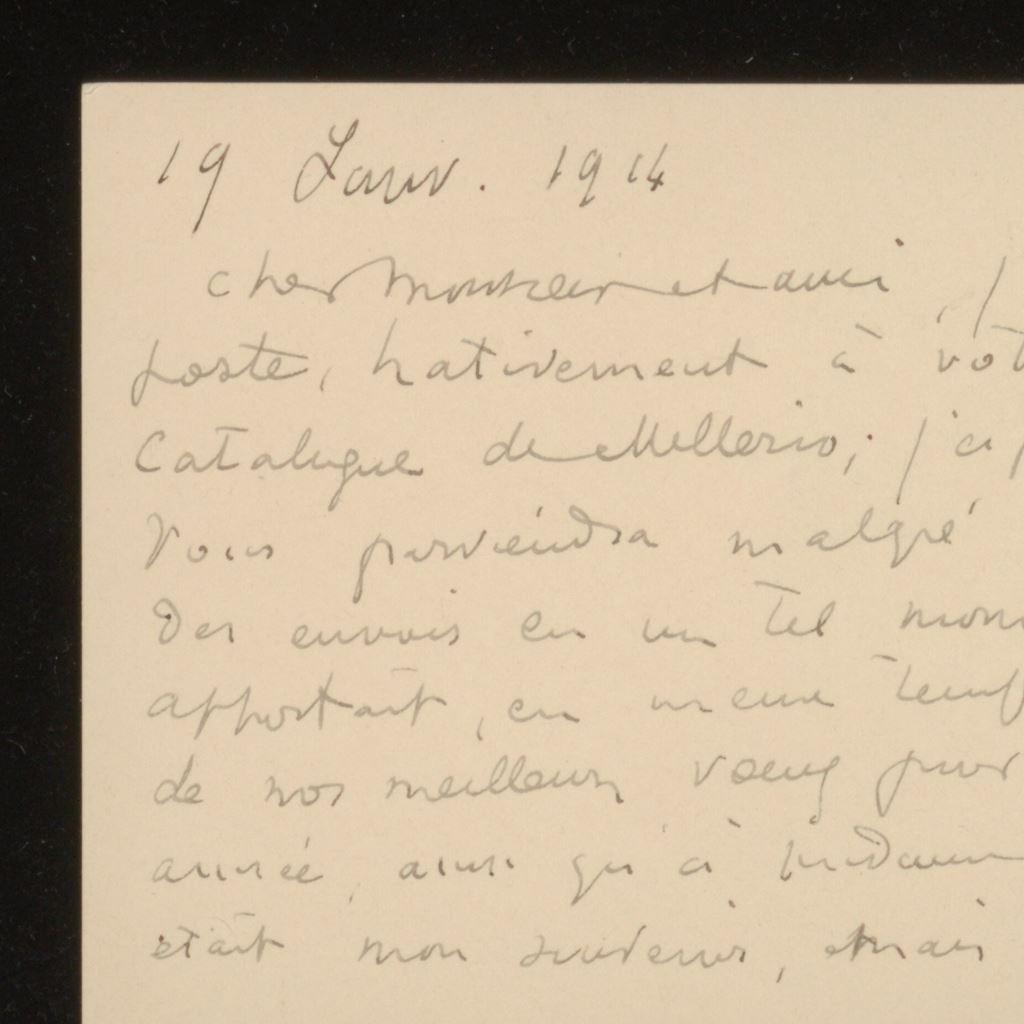 19 Janv. 1914
cher Monsieur et ami, j
poste, hativement à vot
Catalogue de Mellerio; j'ai
Vous parviendra malgré
des envois en un tel mom
apportait, en meme temp
de nos meilleurs voeux pour
année, ainsi qu'à Madame
était mon souvenir, mais